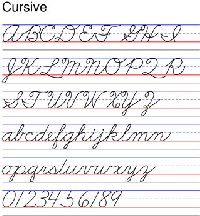 Cursive
ABCDEF GHI
JKLMNOPQR
STUVWXYZ
abcdefghijklmn
opqrstuvwxyz
0123456789